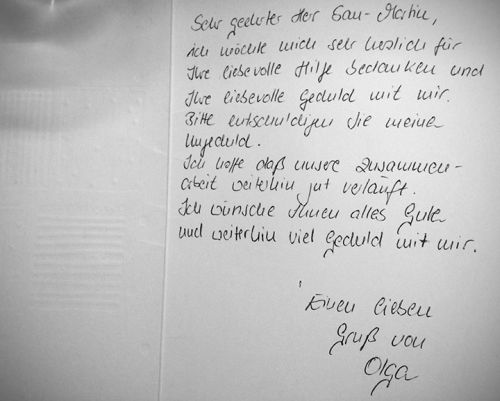 Sehr geehrter Herr San-Martin,
ich möchte mich sehr herzlich für
Ihre liebevolle Hilfe bedanken und
Ihre liebevolle Geduld mit mir.
Bitte entschuldigen Sie meine
Ungeduld.
Ich hoffe daß unsere Zusammen-
arbeit weiterhin gut verläuft.
Ich wünsche Ihnen alles Gute
und weiterhin viel Geduld mit mir.
Einen lieben
Gruß von
Olga